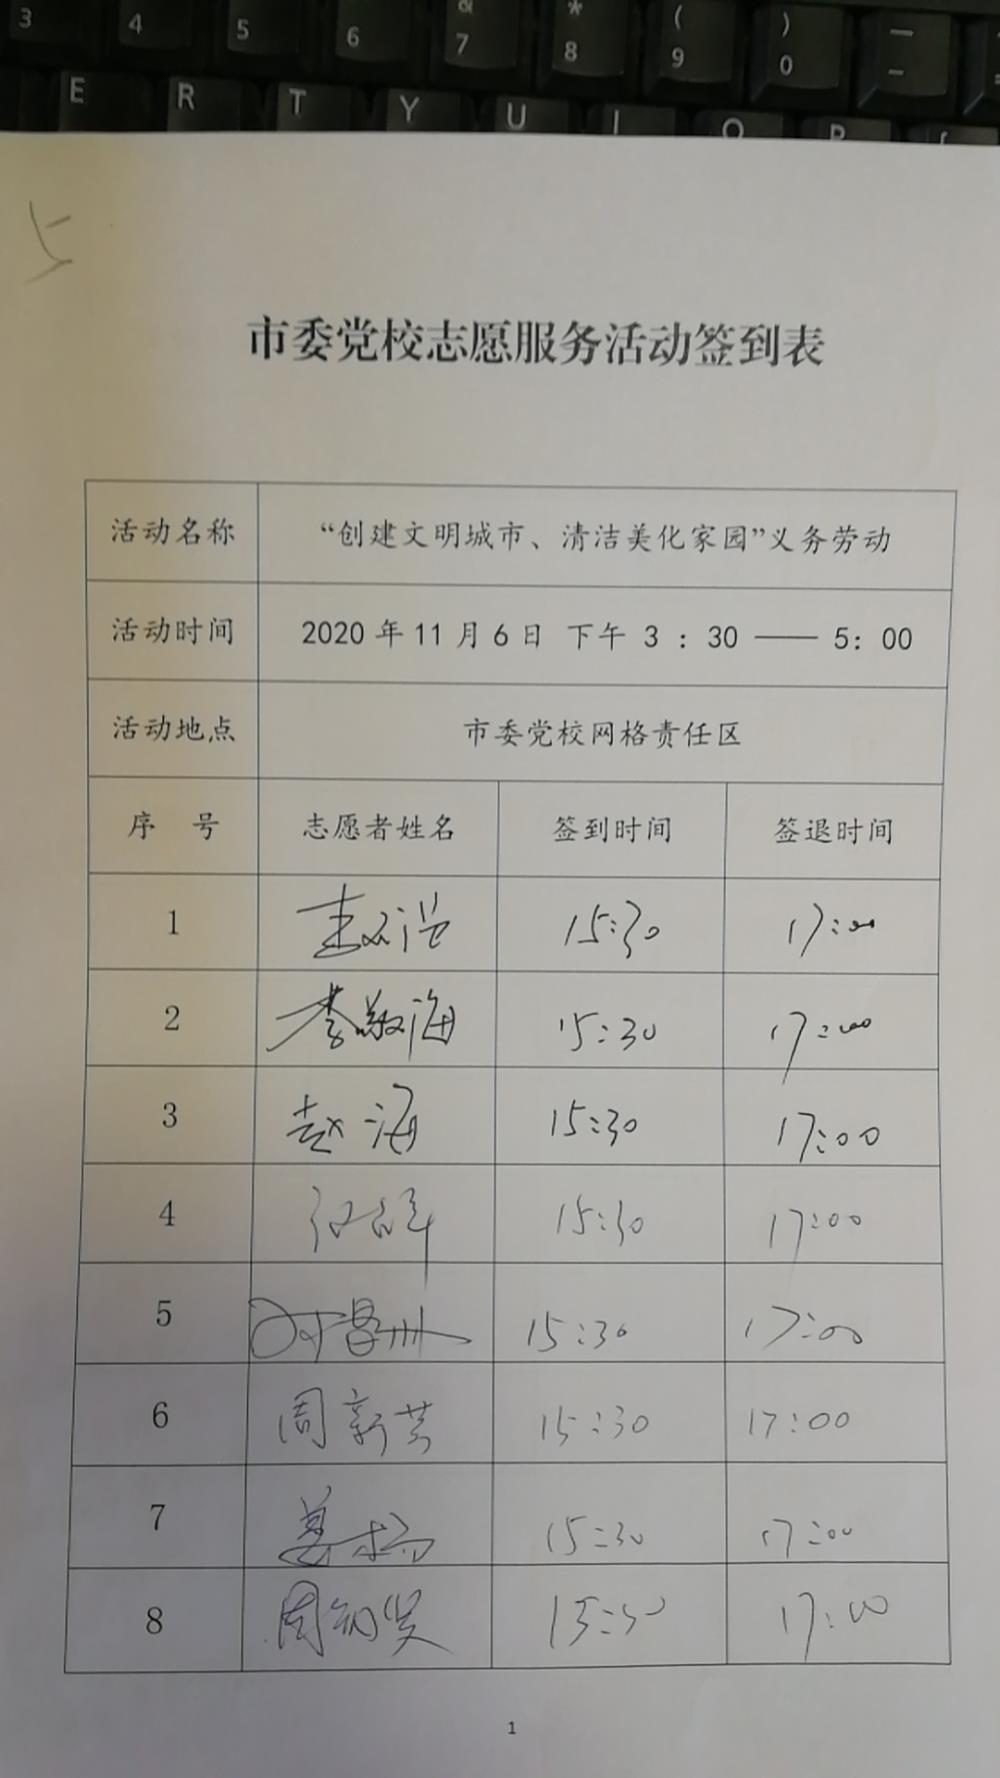 3 4 5 6 & 7 * 8 ( 9 ) 0
E R T Y U I O P
5
市委党校志愿服务活动签到表
活动名称 “创建文明城市、清洁美化家园”义务劳动
活动时间 2020 年 11 月 6 日 下午 3 : 30 —— 5: 00
活动地点 市委党校网格责任区
序 号 志愿者姓名 签到时间 签退时间
1 15:30 17:00
2 李敬海 15:30 17:00
3 赵海 15:30 17:00
4 15:30 17:00
5 15:30 17:00
6 周新芸 15:30 17:00
7 姜杨 15:30 17:00
8 15:30 17:00
1